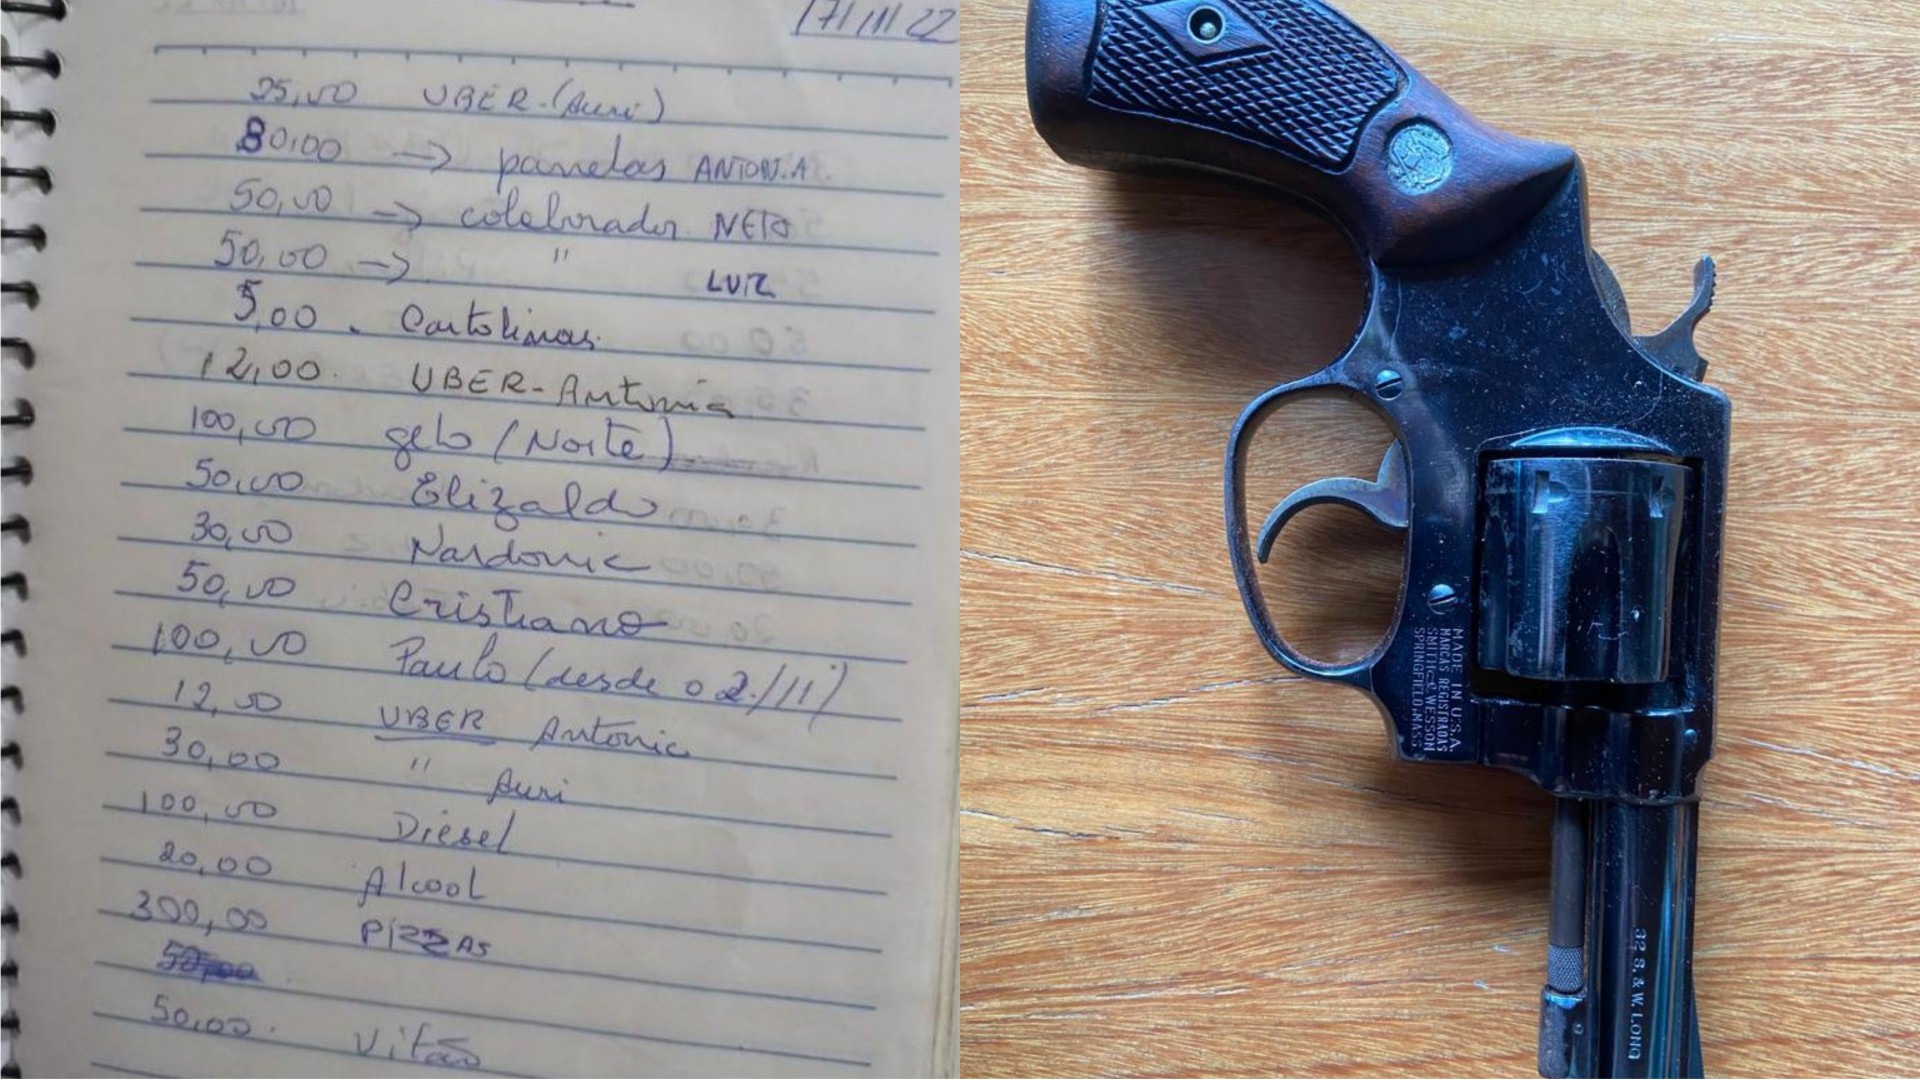 17/11/22
25,00 UBER-(Auri)
80,00 → panelas ANTONIA
50,00 → colaborador NETO
50,00 → " LUIZ
5,00. Cartolinas.
12,00. UBER-Antonia
100,00 gelo (Norte)
50,00 Elizaldo
30,00 Nardonic
50,00 Cristiano
100,00 Paulo (desde o 2/11)
12,00 UBER Antonia
30,00 " Auri
100,00 Diesel
20,00 Alcool
300,00 PIZZAS
50,00
50,00. Vitão
MADE IN U.S.A.
MARCAS REGISTRADAS
SMITH & WESSON
SPRINGFIELD, MASS.
32 S.&W. LONG